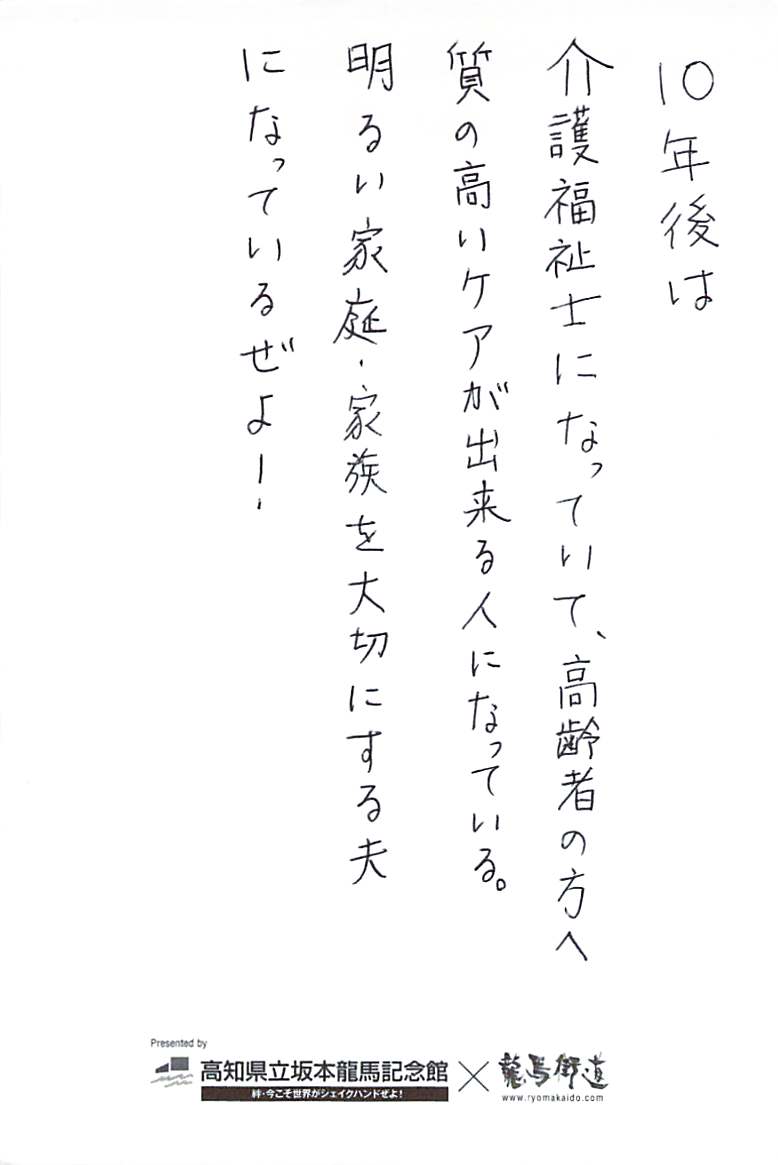 10年後は
介護福祉士になっていて、高齢者の方へ
質の高いケアが出来る人になっている。
明るい家庭・家族を大切にする夫
になっているぜよ！
Presented by
高知県立坂本龍馬記念館 × 龍馬街道
絆・今こそ世界がシェイクハンドぜよ！
www.ryomakaido.com